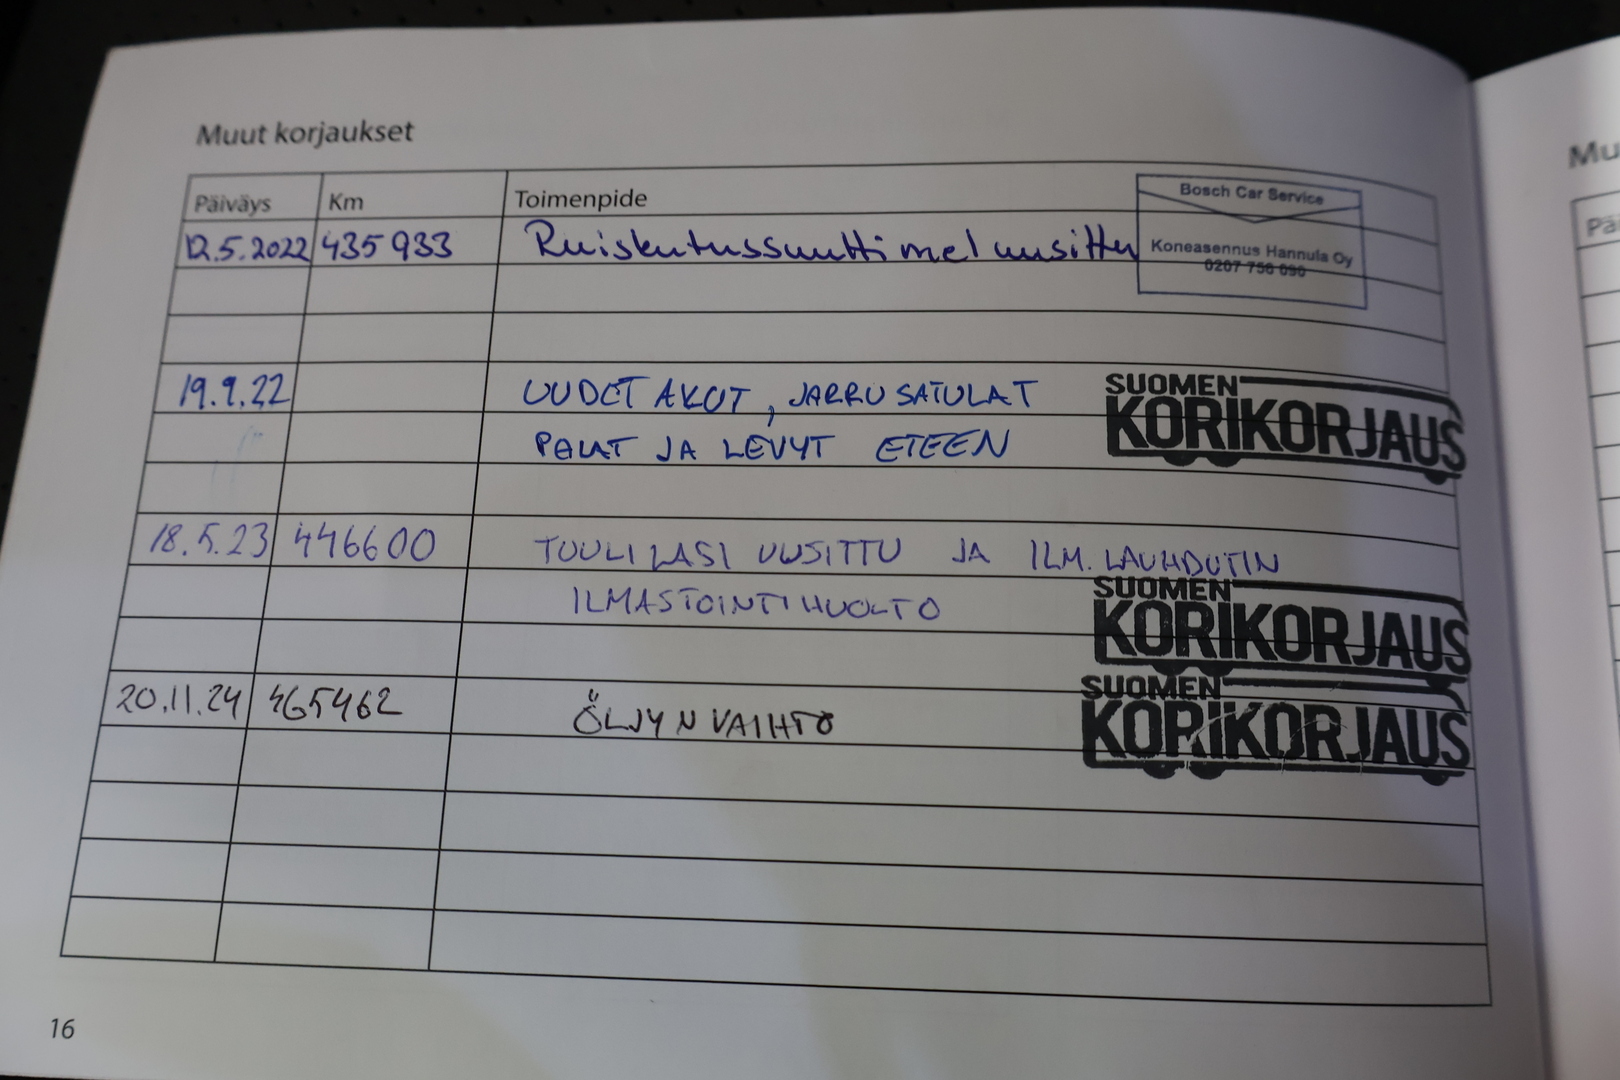 Muut korjaukset
Päiväys Km Toimenpide
Bosch Car Service
12.5.2022 435 933 Ruiskutussuuttimet uusittu
Koneasennus Hannula Oy
0207 756 690
19.9.22 UUDET AKUT, JARRUSATULAT
PALAT JA LEVYT ETEEN
SUOMEN
KORIKORJAUS
18.5.23 446600 TUULILASI UUSITTU JA ILM. LAUHDUTIN
ILMASTOINTIHUOLTO
SUOMEN
KORIKORJAUS
20.11.24 465462 ÖLJYN VAIHTO
SUOMEN
KORIKORJAUS
16
Mu
Pä